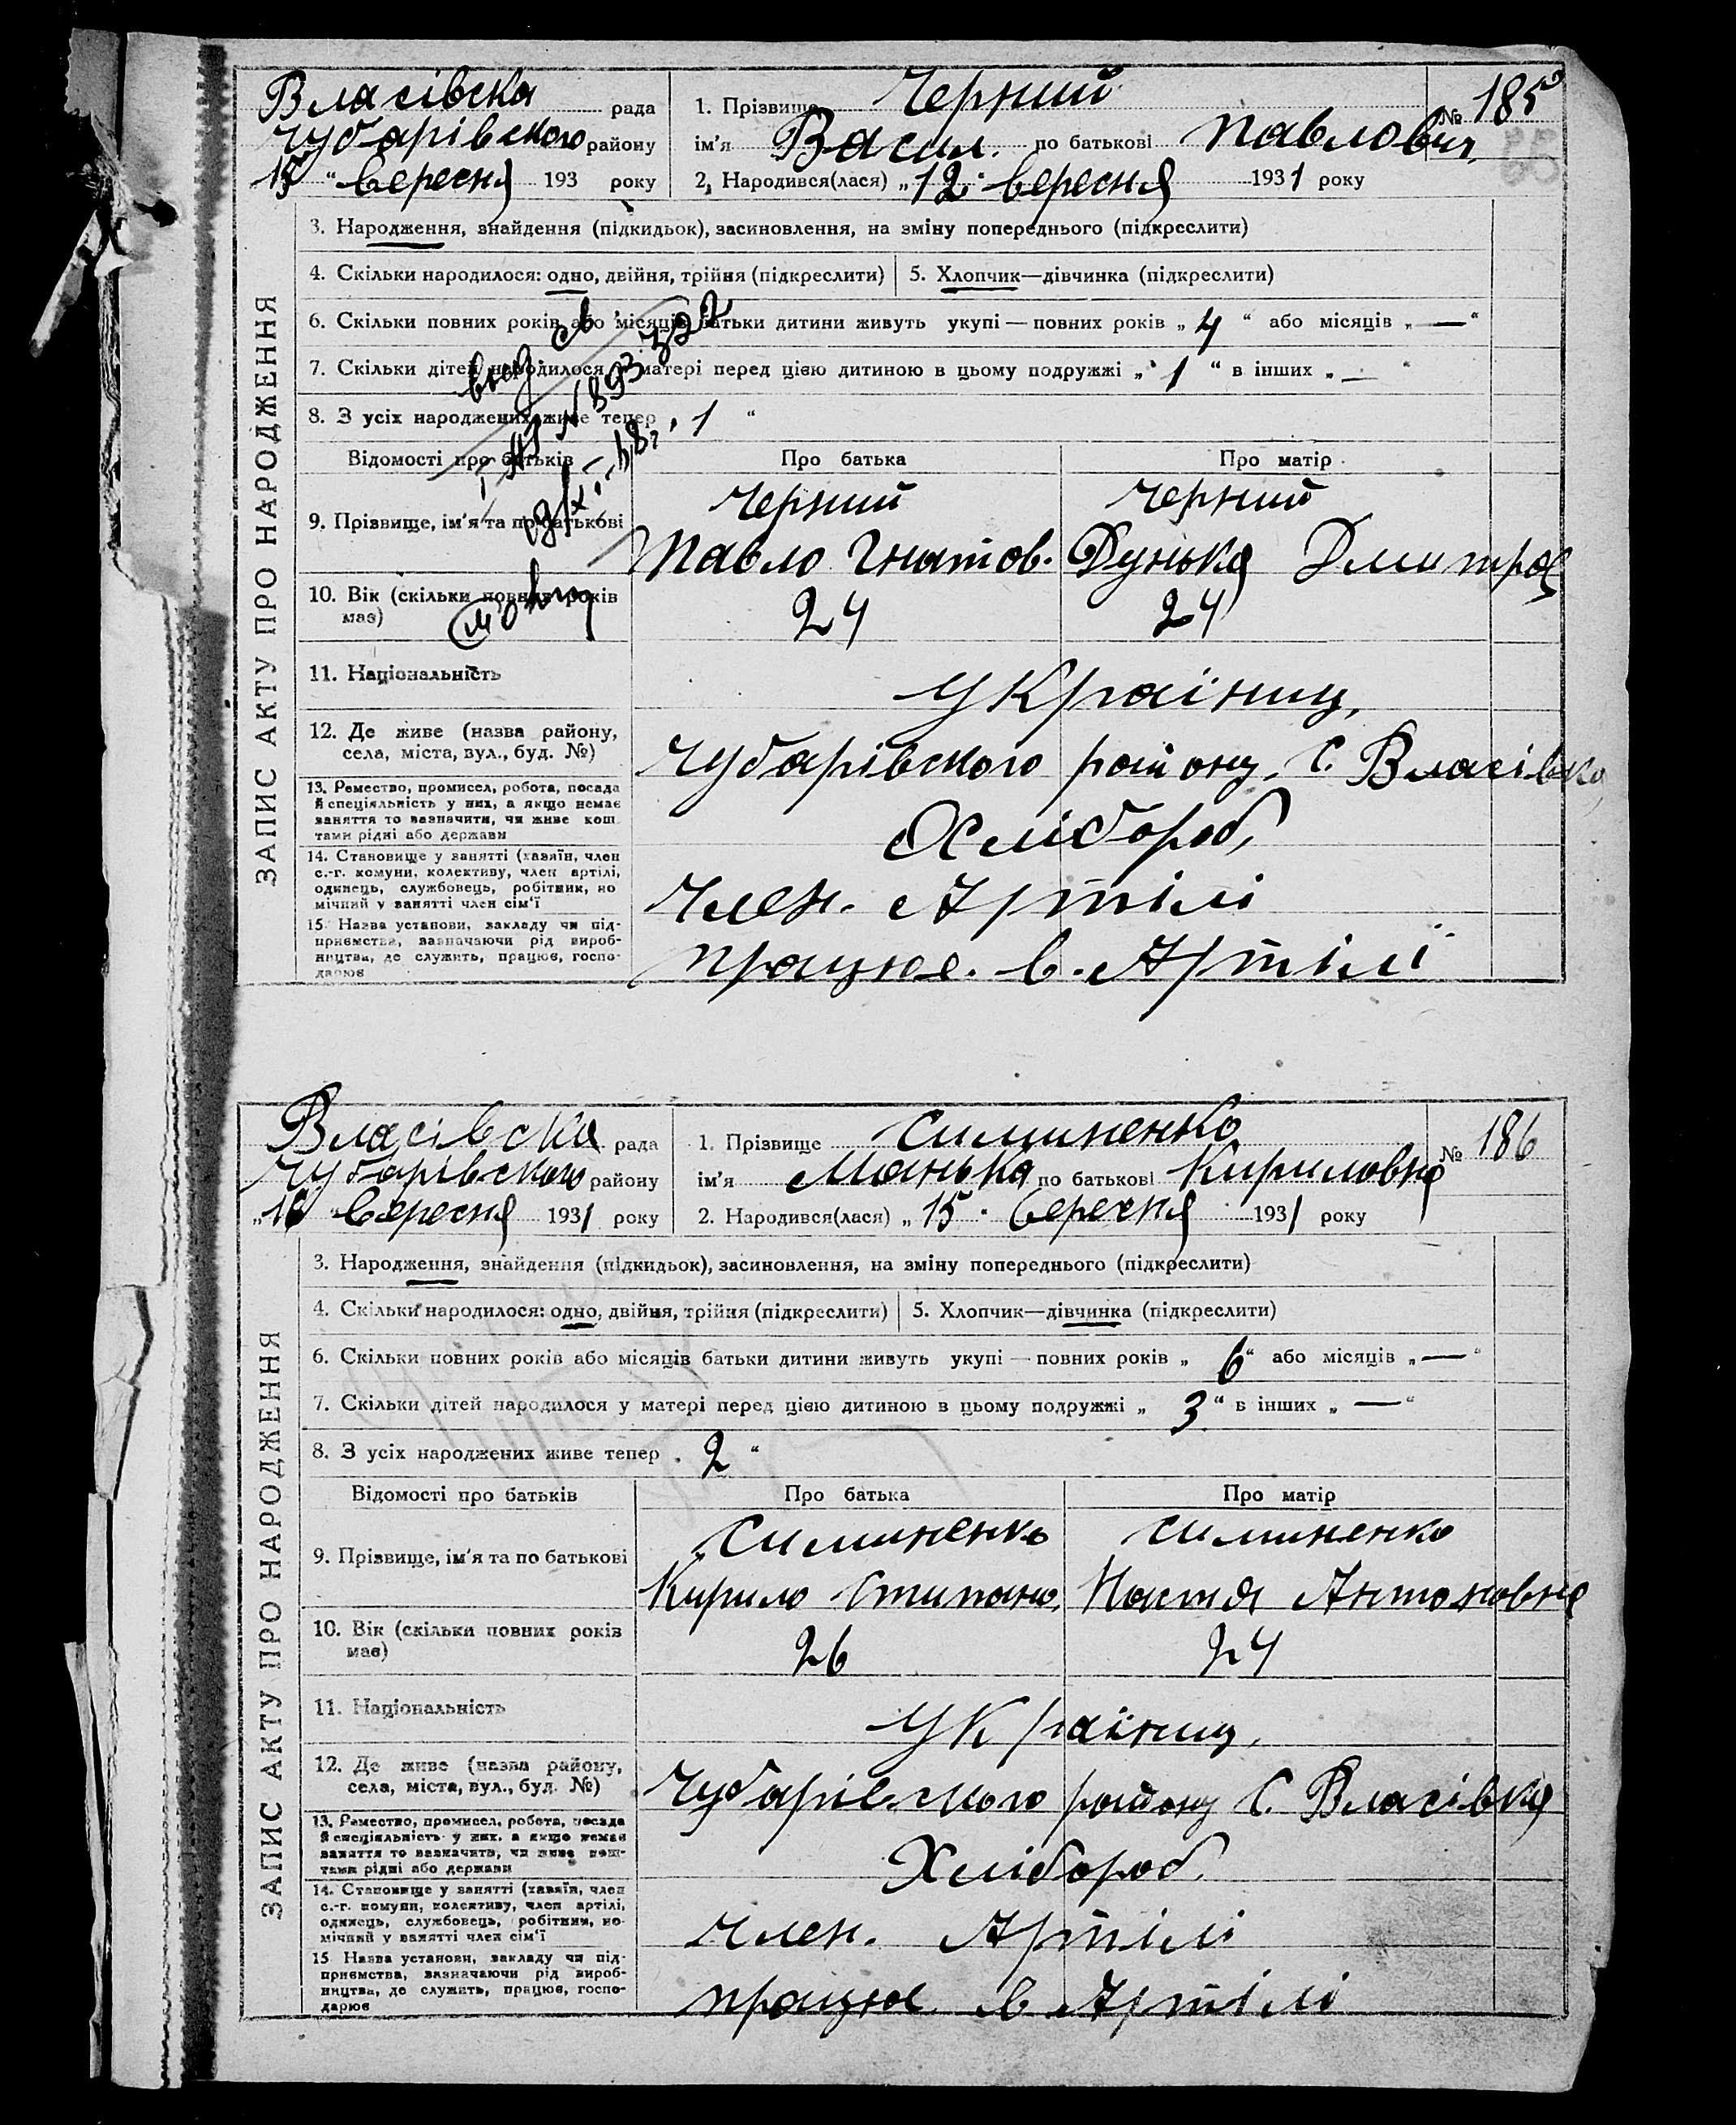 Власівска рада
Чубарівского району
15 " вересня 193 року
1. Прізвище Черний
№ 185
ім'я Васил. по батькові Павлович
2. Народився(лася) „ 12 " вересня 1931 року
ЗАПИС АКТУ ПРО НАРОДЖЕННЯ
3. Народження, знайдення (підкидьок), засиновлення, на зміну попереднього (підкреслити)
4. Скільки народилося: одно, двійня, трійня (підкреслити)
5. Хлопчик—дівчинка (підкреслити)
6. Скільки повних років або місяців батьки дитини живуть укупі — повних років „ 4 " або місяців „ — "
7. Скільки дітей народилося у матері перед цією дитиною в цьому подружжі „ 1 " в інших „ — "
8. З усіх народжених живе тепер „ 1 "
Відомості про батьків
Про батька
Про матір
9. Прізвище, ім'я та по батькові
Черний
Павло Гнатов.
Черний
Дунька Дмитров
10. Вік (скільки повних років
має)
24
24
11. Національність
Українц,
12. Де живе (назва району,
села, міста, вул., буд. №)
Чубарівского району, С. Власівка
13. Ремество, промисел, робота, посада
й спеціяльність у них, а якщо немає
заняття то зазначити, чи живе кош
тами рідні або держави
Хлібороб,
14. Становище у занятті (хазяїн, член
с.-г. комуни, колективу, член артілі,
одинець, службовець, робітник, по
мічний у занятті член сім'ї
Член. Артілі
15. Назва установи, закладу чи під-
приємства, зазначаючи рід вироб-
ництва, де служить, працює, госпо-
дарює
працює. в. Артілі
Власівска рада
Чубарівского району
„ 16 вересня 1931 року
1. Прізвище Симиненко
№ 186
ім'я Манька по батькові Кириловна
2. Народився(лася) „ 15 " вересня 1931 року
ЗАПИС АКТУ ПРО НАРОДЖЕННЯ
3. Народження, знайдення (підкидьок), засиновлення, на зміну попереднього (підкреслити)
4. Скільки народилося: одно, двійня, трійня (підкреслити)
5. Хлопчик—дівчинка (підкреслити)
6. Скільки повних років або місяців батьки дитини живуть укупі — повних років „ 6 " або місяців „ — "
7. Скільки дітей народилося у матері перед цією дитиною в цьому подружжі „ 3 " в інших „ — "
8. З усіх народжених живе тепер „ 2 "
Відомості про батьків
Про батька
Про матір
9. Прізвище, ім'я та по батькові
Симиненко
Кирило Стипано,
Симиненко
Настя Антоновна
10. Вік (скільки повних років
має)
26
24
11. Національність
Українц,
12. Де живе (назва району,
села, міста, вул., буд. №)
Чубарівского району С. Власівка
13. Ремество, промисел, робота, посада
й спеціяльність у них, а якщо немає
заняття то зазначить, чи живе кош-
тами рідні або держави
Хлібороб.
14. Становище у занятті (хазяїн, член
с.-г. комуни, колективу, член артілі,
одинець, службовець, робітник, по-
мічний у занятті член сім'ї
Член. Артілі
15 Назва установи, закладу чи під-
приємства, зазначаючи рід вироб-
ництва, де служить, працює, госпо-
дарює
працює в Артілі